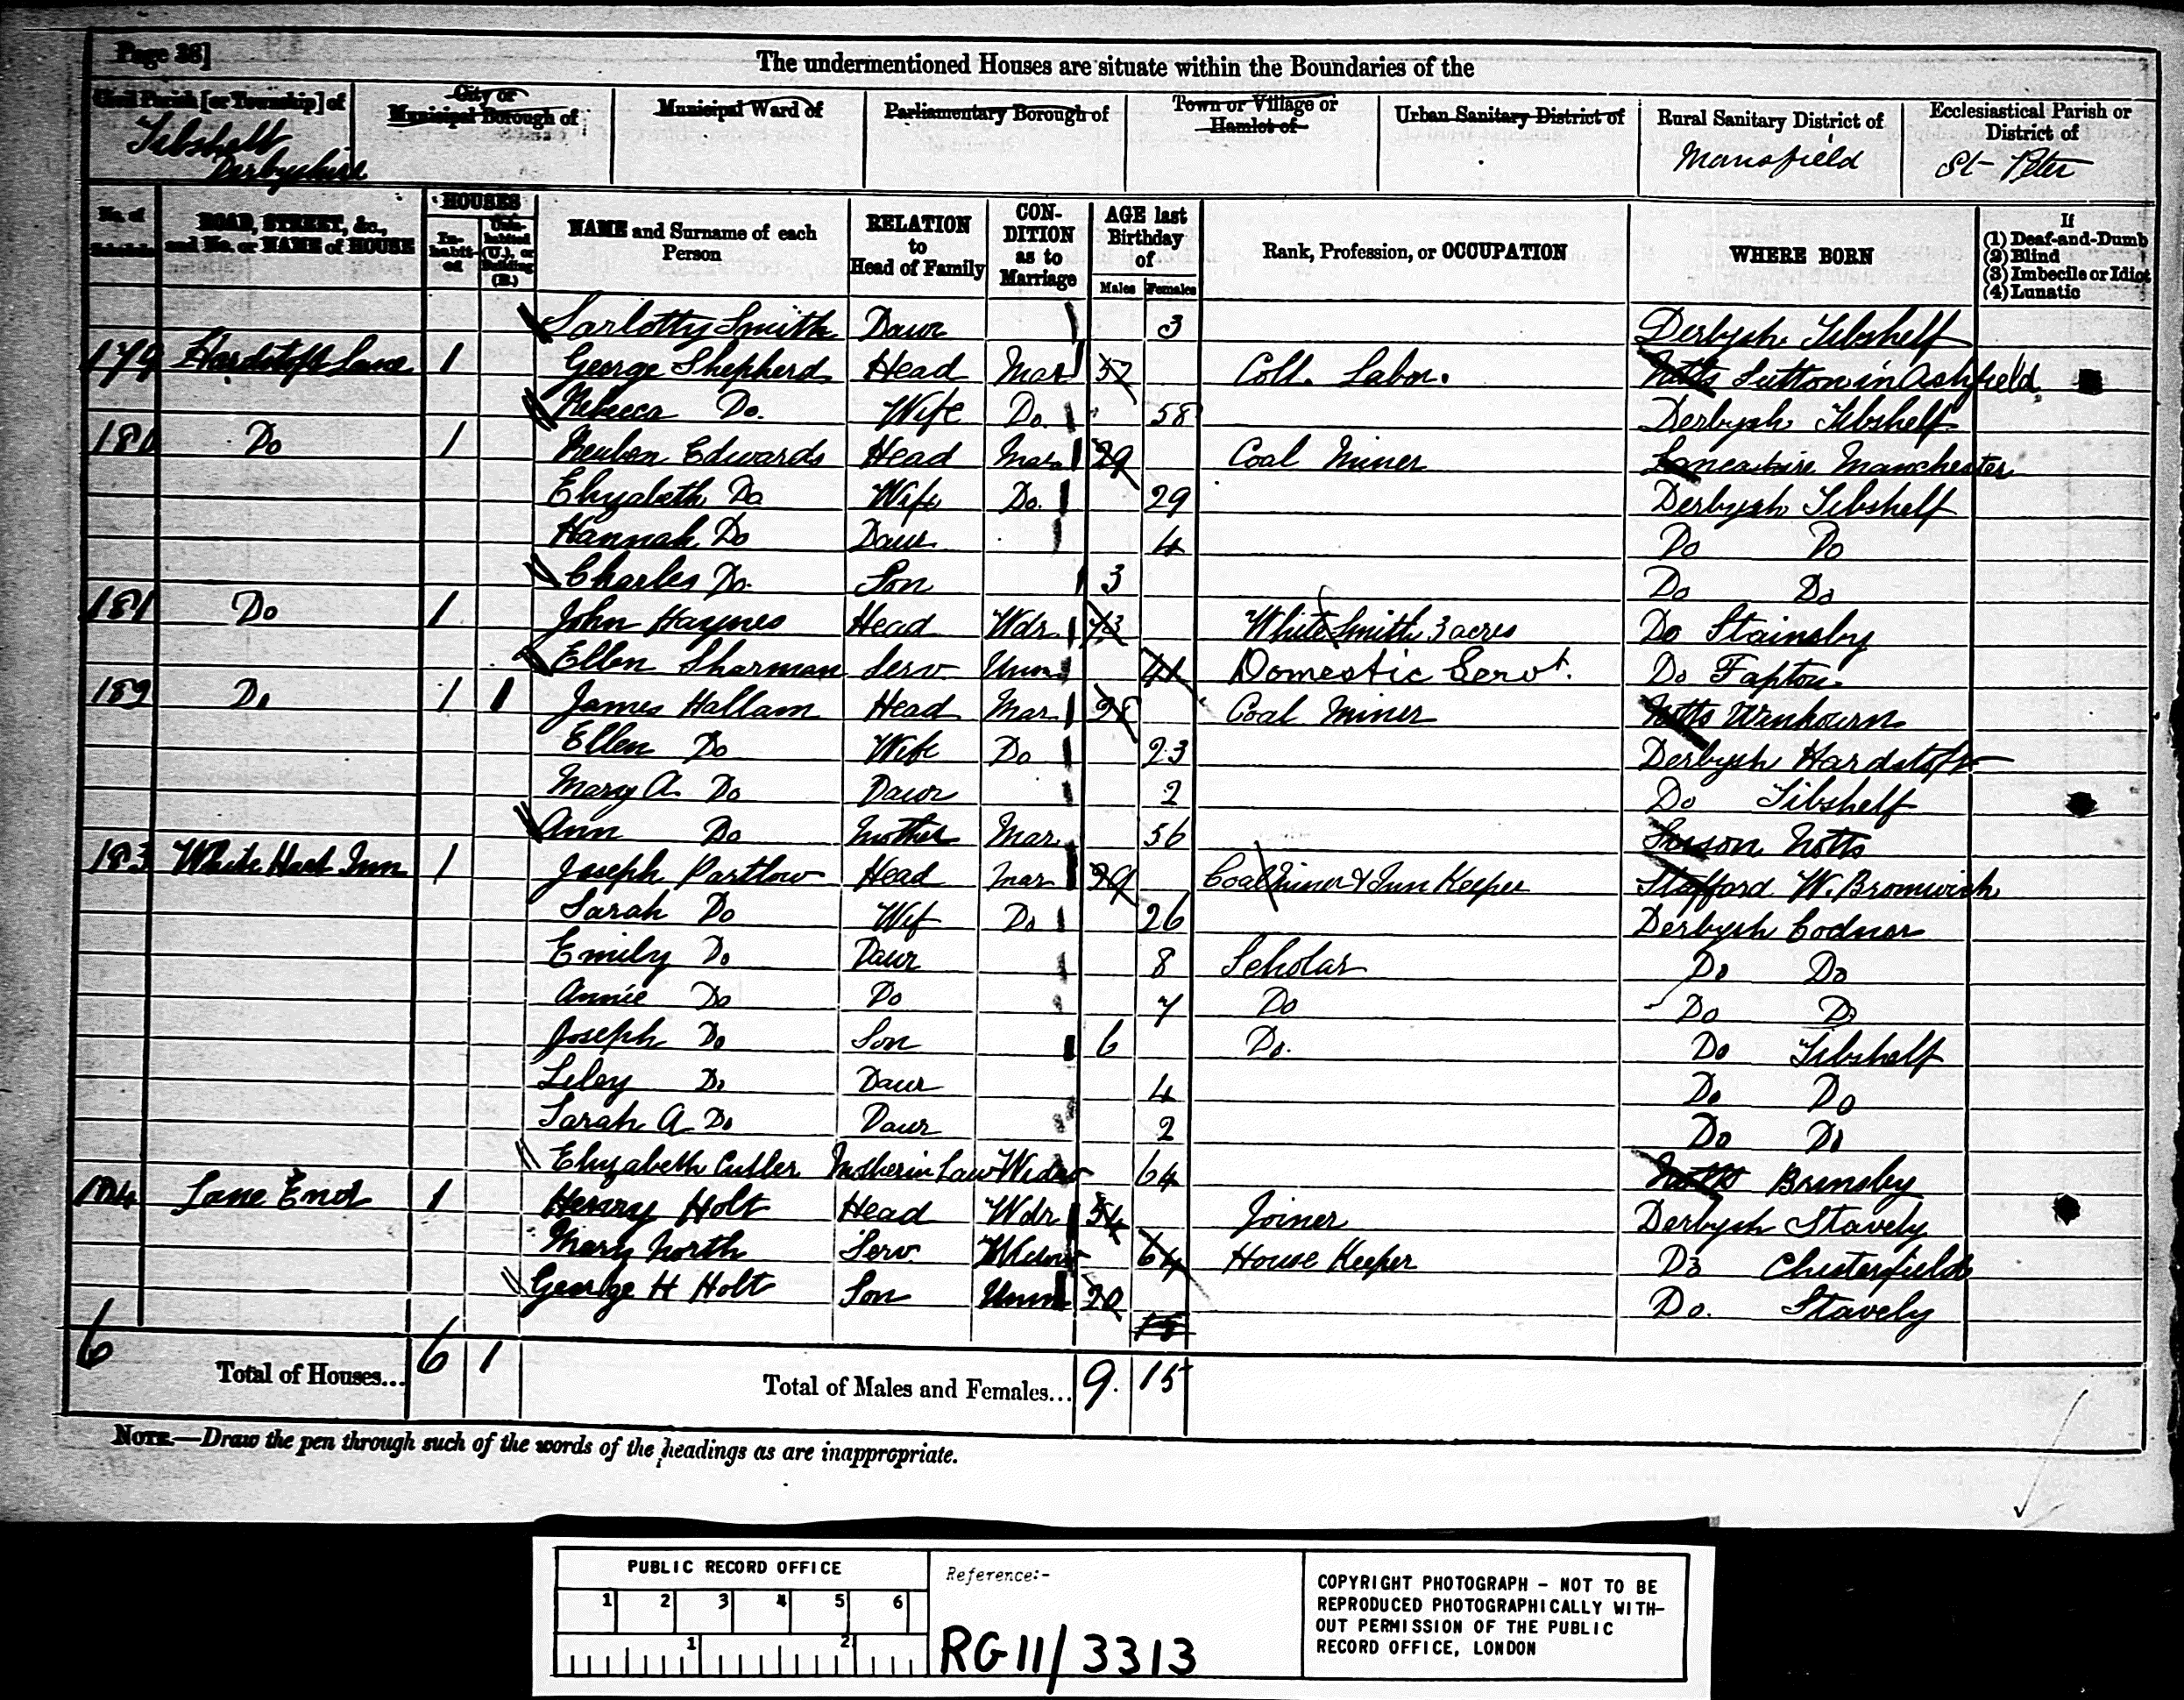 Page 38]
The undermentioned Houses are situate within the Boundaries of the
Civil Parish [or Township] of
City or Municipal Borough of
Municipal Ward of
Parliamentary Borough of
Town or Village or Hamlet of
Urban Sanitary District of
Rural Sanitary District of
Ecclesiastical Parish or District of
Tibshelf Derbyshire
Mansfield
St Peter
No. of Schedule
ROAD, STREET, &c., and No. or NAME of HOUSE
HOUSES
Inhabited
Uninhabited (U.), or Building (B.)
NAME and Surname of each Person
RELATION to Head of Family
CONDITION as to Marriage
AGE last Birthday of
Males Females
Rank, Profession, or OCCUPATION
WHERE BORN
If
(1) Deaf-and-Dumb
(2) Blind
(3) Imbecile or Idiot
(4) Lunatic
Sarlotty Smith Daur 3 Derbysh Tibshelf
179 Hardstoft Lane 1 George Shepherd Head Mar 57 Coll. Labor. Notts Sutton in Ashfield
Rebecca Do. Wife Do. 58 Derbysh Tibshelf
180 Do 1 Reuben Edwards Head Mar 29 Coal Miner Lancashire Manchester
Elizabeth Do Wife Do. 29 Derbysh Tibshelf
Hannah Do Daur 4 Do Do
Charles Do. Son 3 Do Do
181 Do 1 John Haynes Head Wdr 73 White Smith 3 acres Do Stainsby
Ellen Sharman Serv Unm 41 Domestic Servt. Do Fapton
182 Do 1 1 James Hallam Head Mar 28 Coal Miner Notts
Ellen Do Wife Do 23 Derbysh Hardstoft
Mary A. Do Daur 2 Do Tibshelf
Ann Do Mother Mar 56 Notts
183 White Hart Inn 1 Joseph Partlow Head Mar 29 Coal Miner & Inn Keeper Stafford W. Bromwich
Sarah Do Wif Do 26 Derbysh Codnor
Emily Do Daur 8 Scholar Do Do
Annie Do Do 7 Do Do Do
Joseph Do Son 6 Do. Do Tibshelf
Liley Do Daur 4 Do Do
Sarah A Do Daur 2 Do Do
Elizabeth Cutler Mother in Law Widow 64 Notts Brinsley
184 Lane End 1 Henry Holt Head Wdr 54 Joiner Derbysh Stavely
Mary North Serv. Widow 64 House Keeper Do Chesterfield
George H Holt Son Unm 20 Do. Stavely
15
6 Total of Houses... 6 1 Total of Males and Females... 9. 15
NOTE.—Draw the pen through such of the words of the headings as are inappropriate.
PUBLIC RECORD OFFICE
1 2 3 4 5 6
1 2
Reference:-
RG 11/3313
COPYRIGHT PHOTOGRAPH - NOT TO BE
REPRODUCED PHOTOGRAPHICALLY WITH-
OUT PERMISSION OF THE PUBLIC
RECORD OFFICE, LONDON